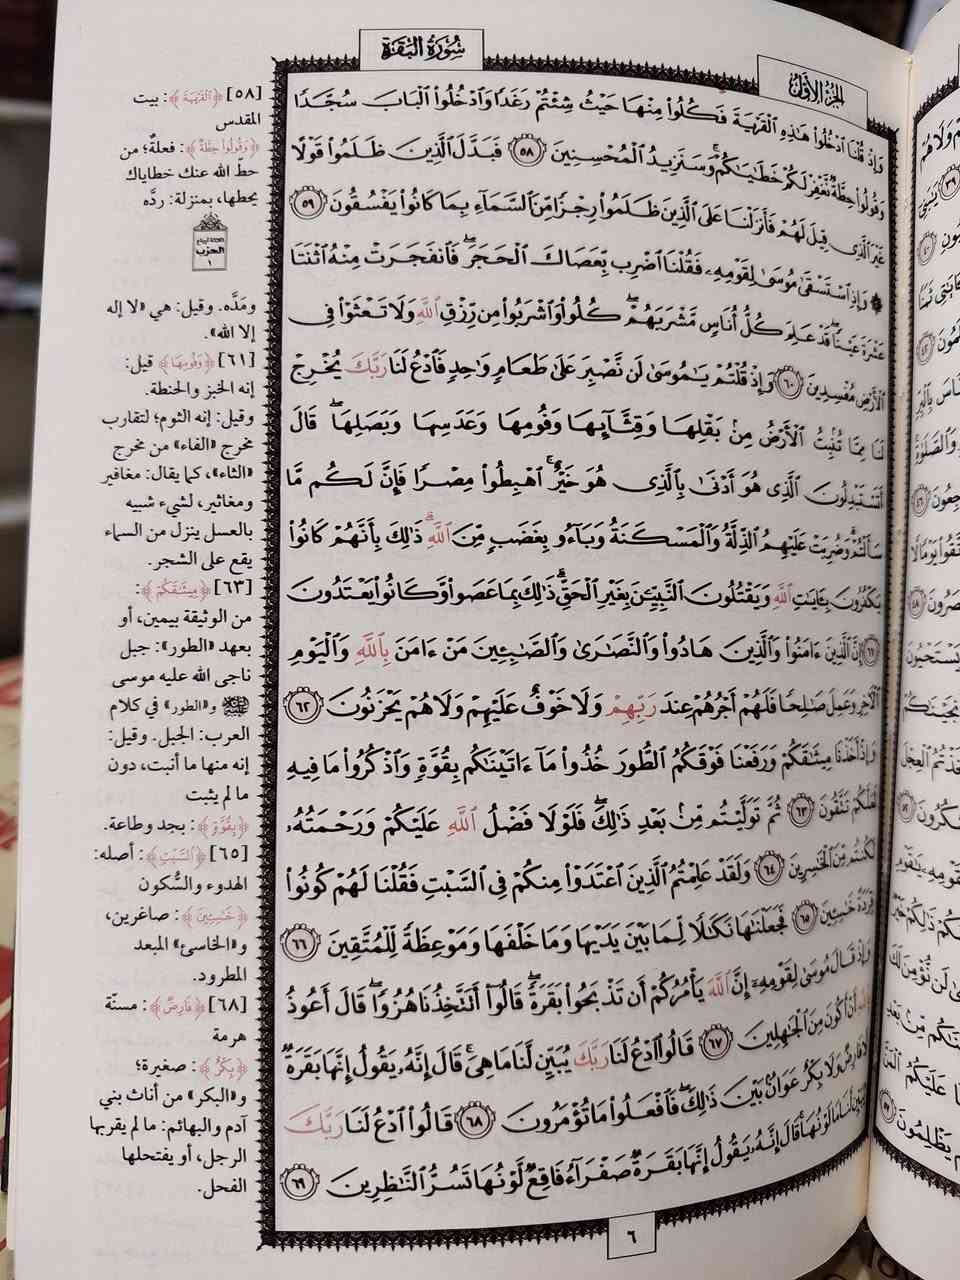 سورة البقرة
الجزء الأول
وَإِذْ قُلْنَا ادْخُلُوا هَٰذِهِ الْقَرْيَةَ فَكُلُوا مِنْهَا حَيْثُ شِئْتُمْ رَغَدًا وَادْخُلُوا الْبَابَ سُجَّدًا
وَقُولُوا حِطَّةٌ نَّغْفِرْ لَكُمْ خَطَايَاكُمْ ۚ وَسَنَزِيدُ الْمُحْسِنِينَ ٥٨ فَبَدَّلَ الَّذِينَ ظَلَمُوا قَوْلًا
غَيْرَ الَّذِي قِيلَ لَهُمْ فَأَنزَلْنَا عَلَى الَّذِينَ ظَلَمُوا رِجْزًا مِّنَ السَّمَاءِ بِمَا كَانُوا يَفْسُقُونَ ٥٩
۞ وَإِذِ اسْتَسْقَىٰ مُوسَىٰ لِقَوْمِهِ فَقُلْنَا اضْرِب بِّعَصَاكَ الْحَجَرَ ۖ فَانفَجَرَتْ مِنْهُ اثْنَتَا
عَشْرَةَ عَيْنًا ۖ قَدْ عَلِمَ كُلُّ أُنَاسٍ مَّشْرَبَهُمْ ۖ كُلُوا وَاشْرَبُوا مِن رِّزْقِ اللَّهِ وَلَا تَعْثَوْا فِي
الْأَرْضِ مُفْسِدِينَ ٦٠ وَإِذْ قُلْتُمْ يَا مُوسَىٰ لَن نَّصْبِرَ عَلَىٰ طَعَامٍ وَاحِدٍ فَادْعُ لَنَا رَبَّكَ يُخْرِجْ
لَنَا مِمَّا تُنبِتُ الْأَرْضُ مِن بَقْلِهَا وَقِثَّائِهَا وَفُومِهَا وَعَدَسِهَا وَبَصَلِهَا ۖ قَالَ
أَتَسْتَبْدِلُونَ الَّذِي هُوَ أَدْنَىٰ بِالَّذِي هُوَ خَيْرٌ ۚ اهْبِطُوا مِصْرًا فَإِنَّ لَكُم مَّا
سَأَلْتُمْ ۗ وَضُرِبَتْ عَلَيْهِمُ الذِّلَّةُ وَالْمَسْكَنَةُ وَبَاءُو بِغَضَبٍ مِّنَ اللَّهِ ۗ ذَٰلِكَ بِأَنَّهُمْ كَانُوا
يَكْفُرُونَ بِآيَاتِ اللَّهِ وَيَقْتُلُونَ النَّبِيِّينَ بِغَيْرِ الْحَقِّ ۗ ذَٰلِكَ بِمَا عَصَوا وَّكَانُوا يَعْتَدُونَ
٦١ إِنَّ الَّذِينَ آمَنُوا وَالَّذِينَ هَادُوا وَالنَّصَارَىٰ وَالصَّابِئِينَ مَنْ آمَنَ بِاللَّهِ وَالْيَوْمِ
الْآخِرِ وَعَمِلَ صَالِحًا فَلَهُمْ أَجْرُهُمْ عِندَ رَبِّهِمْ وَلَا خَوْفٌ عَلَيْهِمْ وَلَا هُمْ يَحْزَنُونَ ٦٢
وَإِذْ أَخَذْنَا مِيثَاقَكُمْ وَرَفَعْنَا فَوْقَكُمُ الطُّورَ خُذُوا مَا آتَيْنَاكُم بِقُوَّةٍ وَاذْكُرُوا مَا فِيهِ
لَعَلَّكُمْ تَتَّقُونَ ٦٣ ثُمَّ تَوَلَّيْتُم مِّن بَعْدِ ذَٰلِكَ ۖ فَلَوْلَا فَضْلُ اللَّهِ عَلَيْكُمْ وَرَحْمَتُهُ
لَكُنتُم مِّنَ الْخَاسِرِينَ ٦٤ وَلَقَدْ عَلِمْتُمُ الَّذِينَ اعْتَدَوْا مِنكُمْ فِي السَّبْتِ فَقُلْنَا لَهُمْ كُونُوا
قِرَدَةً خَاسِئِينَ ٦٥ فَجَعَلْنَاهَا نَكَالًا لِّمَا بَيْنَ يَدَيْهَا وَمَا خَلْفَهَا وَمَوْعِظَةً لِّلْمُتَّقِينَ ٦٦
وَإِذْ قَالَ مُوسَىٰ لِقَوْمِهِ إِنَّ اللَّهَ يَأْمُرُكُمْ أَن تَذْبَحُوا بَقَرَةً ۖ قَالُوا أَتَتَّخِذُنَا هُزُوًا ۖ قَالَ أَعُوذُ
بِاللَّهِ أَنْ أَكُونَ مِنَ الْجَاهِلِينَ ٦٧ قَالُوا ادْعُ لَنَا رَبَّكَ يُبَيِّن لَّنَا مَا هِيَ ۚ قَالَ إِنَّهُ يَقُولُ إِنَّهَا بَقَرَةٌ
لَّا فَارِضٌ وَلَا بِكْرٌ عَوَانٌ بَيْنَ ذَٰلِكَ ۖ فَافْعَلُوا مَا تُؤْمَرُونَ ٦٨ قَالُوا ادْعُ لَنَا رَبَّكَ
يُبَيِّن لَّنَا مَا لَوْنُهَا ۚ قَالَ إِنَّهُ يَقُولُ إِنَّهَا بَقَرَةٌ صَفْرَاءُ فَاقِعٌ لَّوْنُهَا تَسُرُّ النَّاظِرِينَ ٦٩
٦
[٥٨] ﴿الْقَرْيَةَ﴾: بيت
المقدس
﴿وَقُولُوا حِطَّةٌ﴾: فعلةٌ؛ من
حطّ الله عنك خطاياك
يحطها، بمنزلة: ردَّه
الحزب
١
ومَدَّه. وقيل: هي «لا إله
إلا الله».
[٦١] ﴿وَفُومِهَا﴾ قيل:
إنه الخبز والحنطة.
وقيل: إنه الثوم؛ لتقارب
مخرج «الفاء» من مخرج
«الثاء»، كما يقال: مغافير
ومغاثير، لشيء شبيه
بالعسل ينزل من السماء
يقع على الشجر.
[٦٣] ﴿مِيثَاقَكُمْ﴾:
من الوثيقة بيمين، أو
بعهد «الطور»: جبل
ناجى الله عليه موسى
ﷺ و«الطور» في كلام
العرب: الجبل. وقيل:
إنه منها ما أنبت، دون
ما لم يثبت
﴿بِقُوَّةٍ﴾: بجد وطاعة.
[٦٥] ﴿السَّبْتِ﴾: أصله:
الهدوء والسُّكون
﴿خَاسِئِينَ﴾: صاغرين،
و«الخاسئ» المبعد
المطرود.
[٦٨] ﴿فَارِضٌ﴾: مسنّة
هرمة
﴿بِكْرٌ﴾: صغيرة؛
و«البكر» من أناث بني
آدم والبهائم: ما لم يقربها
الرجل، أو يفتحلها
الفحل.